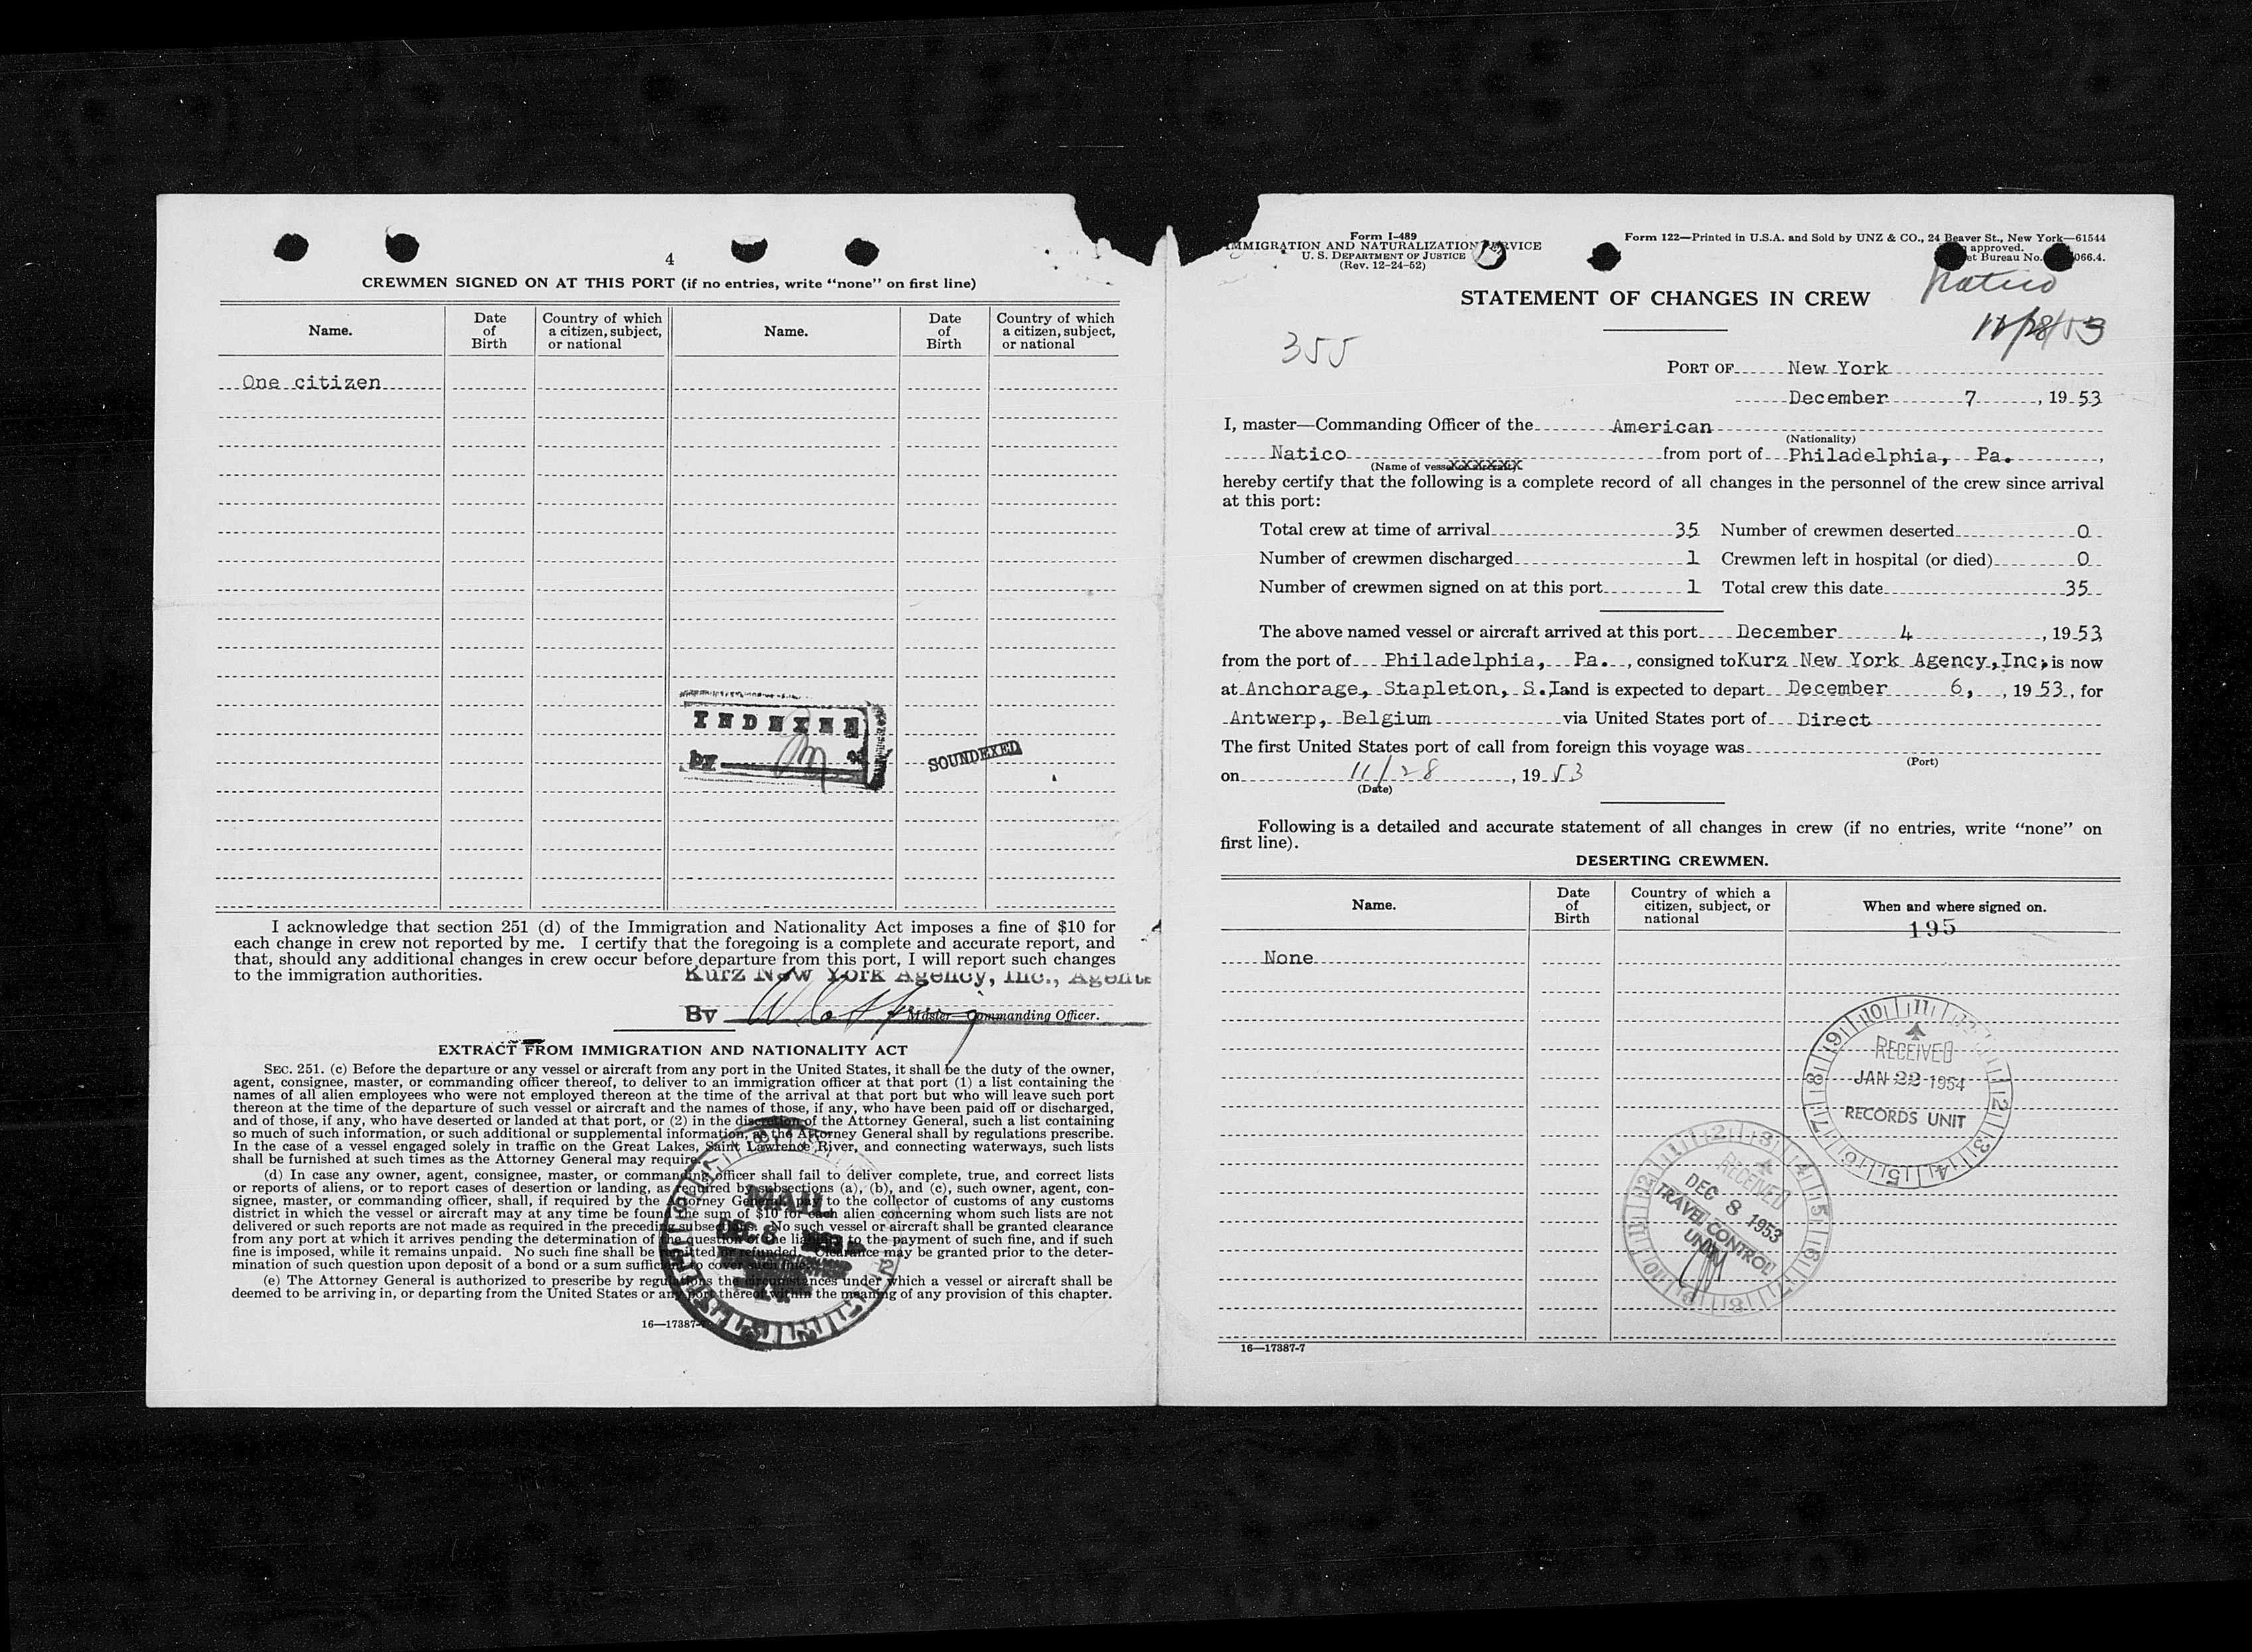 4
CREWMEN SIGNED ON AT THIS PORT (if no entries, write “none” on first line)
Name. Date of Birth Country of which a citizen, subject, or national Name. Date of Birth Country of which a citizen, subject, or national
One citizen
INDEXED
by
SOUNDEXED
I acknowledge that section 251 (d) of the Immigration and Nationality Act imposes a fine of $10 for
each change in crew not reported by me. I certify that the foregoing is a complete and accurate report, and
that, should any additional changes in crew occur before departure from this port, I will report such changes
to the immigration authorities.
Kurz New York Agency, Inc., Agents
By
Master—Commanding Officer.
EXTRACT FROM IMMIGRATION AND NATIONALITY ACT
SEC. 251. (c) Before the departure or any vessel or aircraft from any port in the United States, it shall be the duty of the owner,
agent, consignee, master, or commanding officer thereof, to deliver to an immigration officer at that port (1) a list containing the
names of all alien employees who were not employed thereon at the time of the arrival at that port but who will leave such port
thereon at the time of the departure of such vessel or aircraft and the names of those, if any, who have been paid off or discharged,
and of those, if any, who have deserted or landed at that port, or (2) in the discretion of the Attorney General, such a list containing
so much of such information, or such additional or supplemental information, as the Attorney General shall by regulations prescribe.
In the case of a vessel engaged solely in traffic on the Great Lakes, Saint Lawrence River, and connecting waterways, such lists
shall be furnished at such times as the Attorney General may require.
(d) In case any owner, agent, consignee, master, or commanding officer shall fail to deliver complete, true, and correct lists
or reports of aliens, or to report cases of desertion or landing, as required by subsections (a), (b), and (c), such owner, agent, con
signee, master, or commanding officer, shall, if required by the Attorney General, pay to the collector of customs of any customs
district in which the vessel or aircraft may at any time be found the sum of $10 for each alien concerning whom such lists are not
delivered or such reports are not made as required in the preceding subsections. No such vessel or aircraft shall be granted clearance
from any port at which it arrives pending the determination of the question of the liability to the payment of such fine, and if such
fine is imposed, while it remains unpaid. No such fine shall be remitted or refunded. Clearance may be granted prior to the deter-
mination of such question upon deposit of a bond or a sum sufficient to cover such fine.
(e) The Attorney General is authorized to prescribe by regulations the circumstances under which a vessel or aircraft shall be
deemed to be arriving in, or departing from the United States or any port thereof within the meaning of any provision of this chapter.
MAIL
DEC 8
16—17387-7
Form I-489
IMMIGRATION AND NATURALIZATION SERVICE
U. S. DEPARTMENT OF JUSTICE
(Rev. 12-24-52)
Form 122—Printed in U.S.A. and Sold by UNZ & CO., 24 Beaver St., New York—61544
approved.
et Bureau No. 066.4.
Natico
STATEMENT OF CHANGES IN CREW
355
PORT OF New York
December 7, 19 53
I, master—Commanding Officer of the American
(Nationality)
Natico from port of Philadelphia, Pa.,
(Name of vessel or aircraft)
hereby certify that the following is a complete record of all changes in the personnel of the crew since arrival
at this port:
Total crew at time of arrival 35 Number of crewmen deserted 0
Number of crewmen discharged 1 Crewmen left in hospital (or died) 0
Number of crewmen signed on at this port 1 Total crew this date 35
The above named vessel or aircraft arrived at this port December 4, 19 53
from the port of Philadelphia, Pa., consigned to Kurz New York Agency, Inc; is now
at Anchorage, Stapleton, S.I and is expected to depart December 6, , 19 53, for
Antwerp, Belgium via United States port of Direct
The first United States port of call from foreign this voyage was
(Port)
on 11/28, 19 53
(Date)
Following is a detailed and accurate statement of all changes in crew (if no entries, write “none” on
first line).
DESERTING CREWMEN.
Name. Date of Birth Country of which a citizen, subject, or national When and where signed on.
195
None
RECEIVED
JAN 22 1954
RECORDS UNIT
RECEIVED
DEC 8 1953
TRAVEL CONTROL
UNIT
16—17387-7